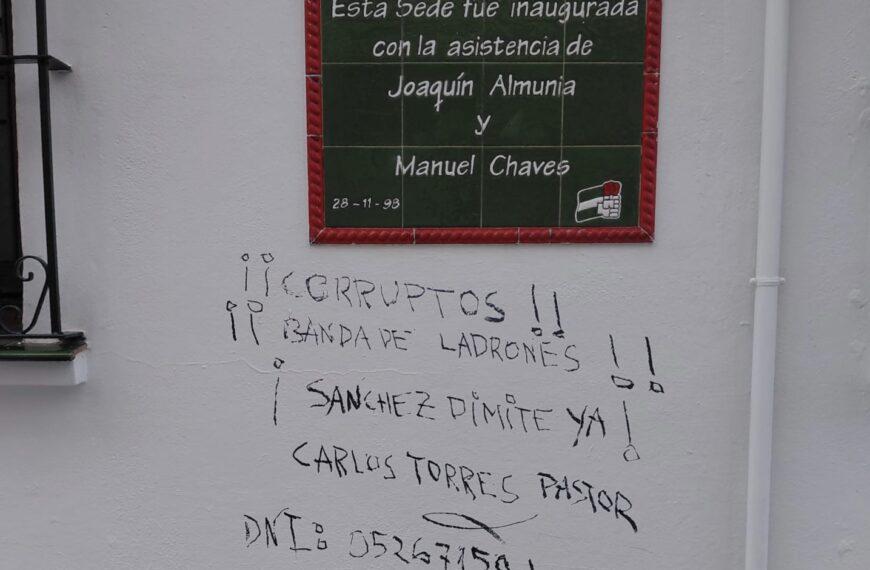 Esta Sede fue inaugurada
con la asistencia de
Joaquín Almunia
y
Manuel Chaves
28-11-98
¡¡CORRUPTOS!!
¡¡BANDA DE LADRONES!!
¡SANCHEZ DIMITE YA!
CARLOS TORRES PASTOR
DNI: